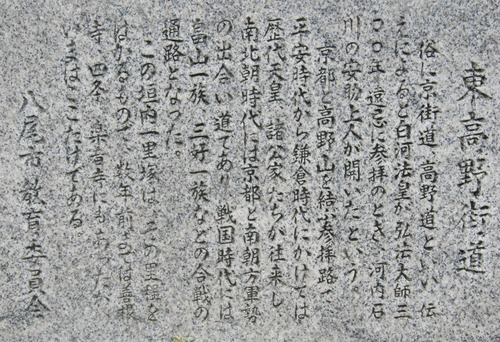 東高野街道
俗に京街道 高野道といい 伝
えによると白河法皇が弘法大師三
〇〇年遠忌に参拝のとき、河内石
川の安助上人が開いたという。
京都と高野山を結ぶ参拝路で
平安時代から鎌倉時代にかけては
歴代天皇 諸公家たちが往来し、
南北朝時代には京都と南朝方軍勢
の出合い道であり 戦国時代には
畠山一族 三好一族などの合戦の
通路となった。
この垣内一里塚は、この里程を
はかるもので 数年前までは善根
寺 四条 楽音寺にもあったが、
いまはここだけである
八尾市教育委員会